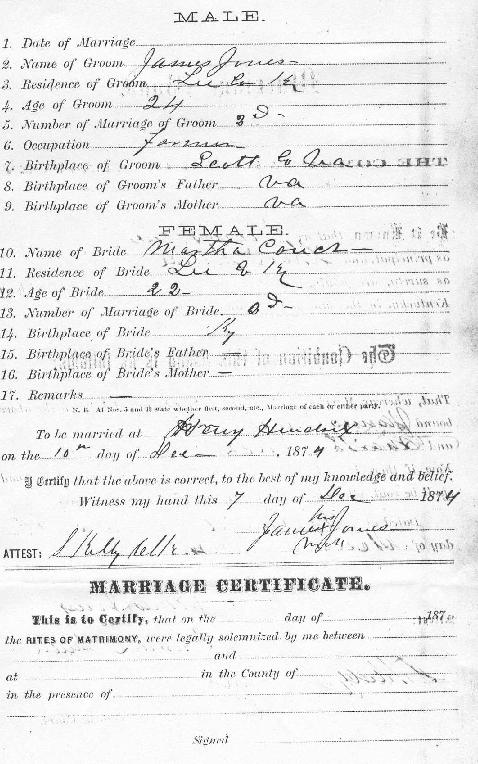 MALE.
1. Date of Marriage
2. Name of Groom James Jones
3. Residence of Groom Lee Co Ky
4. Age of Groom 24
5. Number of Marriage of Groom 2d
6. Occupation Farmer
7. Birthplace of Groom Scott Co Va
8. Birthplace of Groom's Father Va
9. Birthplace of Groom's Mother Va
FEMALE.
10. Name of Bride Martha Couch
11. Residence of Bride Lee Co Ky
12. Age of Bride 22
13. Number of Marriage of Bride
14. Birthplace of Bride Ky
15. Birthplace of Bride's Father —
16. Birthplace of Bride's Mother —
17. Remarks —
N. B. At Nos. 5 and 13 state whether first, second, etc., Marriage of each or either party.
To be married at Henry
on the 10th day of Dec 1874
I Certify that the above is correct, to the best of my knowledge and belief.
Witness my hand this 7 day of Dec 1874
his
James Jones
mark
ATTEST:
MARRIAGE CERTIFICATE.
This is to Certify, that on the day of 187
the RITES OF MATRIMONY, were legally solemnized by me between
and
at in the County of
in the presence of
Signed